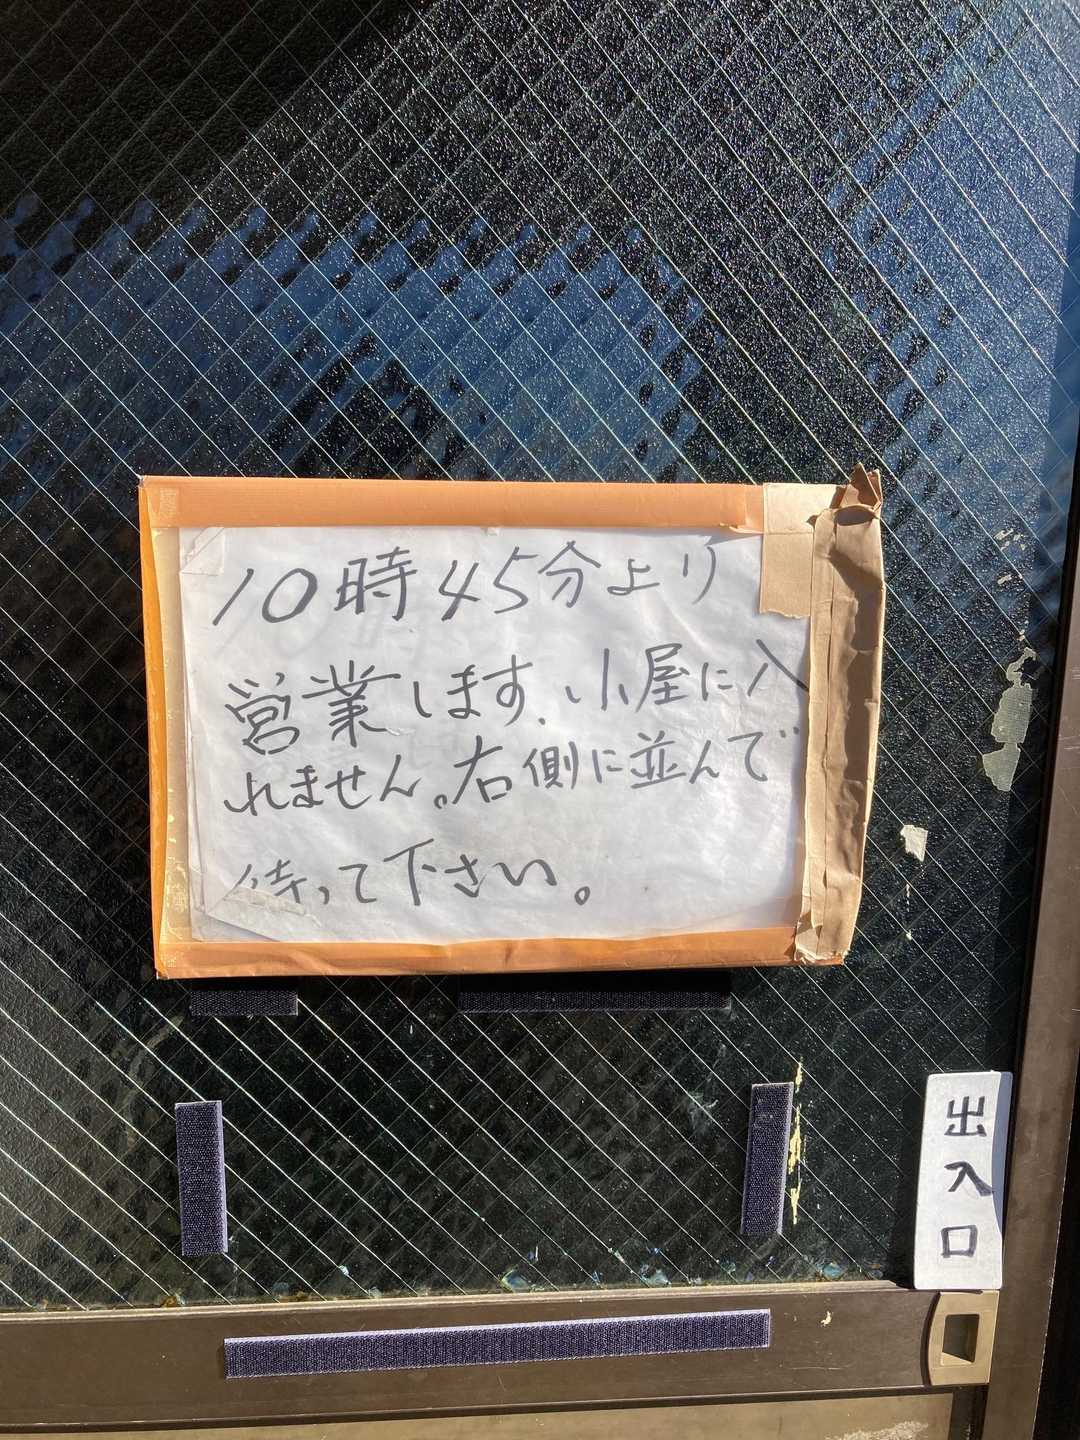 10時45分より
営業します、小屋に入
れません。右側に並んで
待って下さい。
出入口